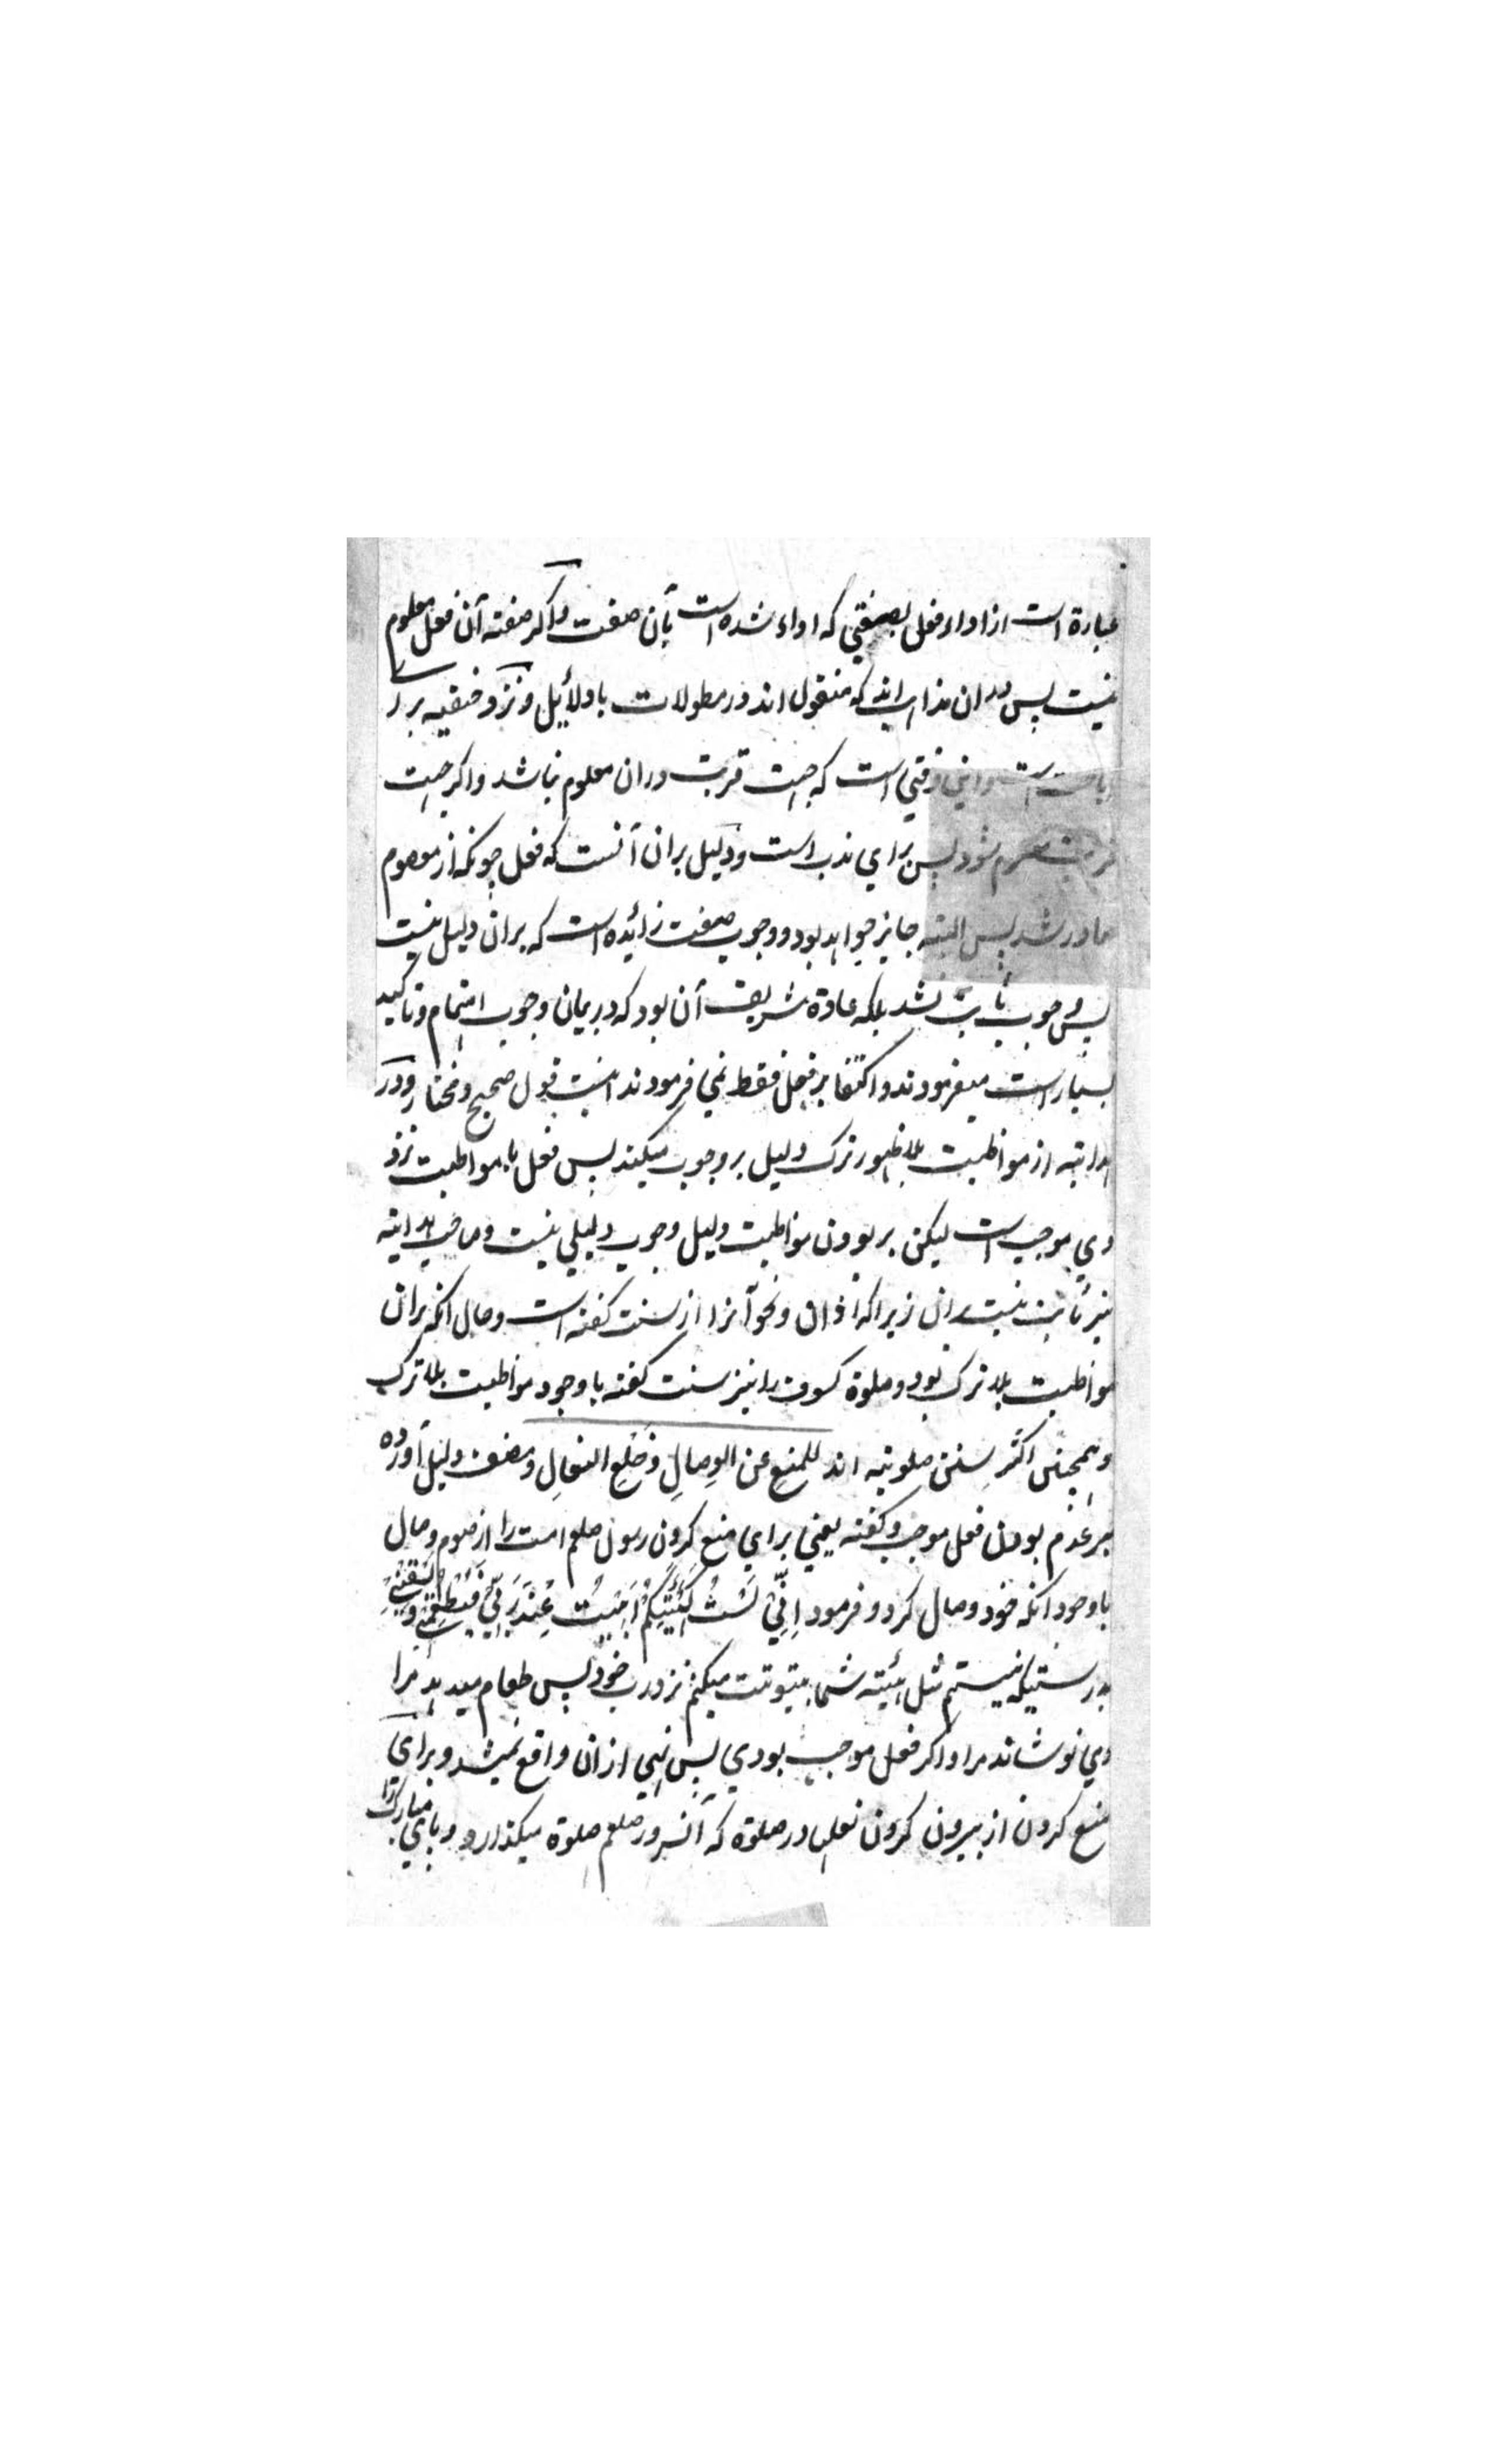 عبارة است از اداء فعل بصفتي كه اداء شده است بآن صفت و اكر صفته آن فعل معلوم
نيست پس در ان مذاهب اند كه منقول اند در مطولات با دلائل و نزد حنفيه برا
اباحت است و اين وقتي است كه جهت قربت در ان معلوم نباشد و اكر جهت
قربت معلوم شود پس براي ندب است و دليل بران آنست كه فعل چونكه از معصوم
صادر شد پس البته جايز خواهد بود و وجوب صفت زائده است كه بران دليل نيست
پس وجوب ثابت نشد بلكه عادة شريف آن بود كه در بيان وجوب اهتمام و تاكيد
بسيار است ميفرمودند و اكتفا بر فعل فقط نمي فرمودند اينست قول صحيح و مختار و در
هدايه از مواظبت بلا ظهور ترك دليل بر وجوب ميكند پس فعل با مواظبت نزد
وي موجب است ليكن بر بودن مواظبت دليل وجوب دليلي نيست و صاحب هدايه
نيز ثابت نيست بران زيراكه اذان و نحو آنرا از سنت كفته است و حال آنكه بران
مواظبت بلا ترك بود و صلوة كسوف را نيز سنت كفته با وجود مواظبت بلا ترك
و همچنين اكثر سنن صلوتيه اند للمنعِ عن الوِصالِ وَخَلْعِ النعالِ و مصنف دليل آورده
بر عدم بودن فعل موجب و كفته يعني براي منع كردن رسول صلعم امت را از صوم وصال
با وجود آنكه خود وصال كرد و فرمود اِنِّيْ لَسْتُ كَهَيْئَتِكُمْ اَبِيْتُ عِنْدَ رَبِّيْ فَيُطْعِمُنِيْ وَيَسْقِيْنِيْ
بدرستيكه نيستم مثل هيئته شما بيتوتت ميكنم نزد رب خود پس طعام ميدهد مرا
و مي نوشاند مرا و اكر فعل موجب بودي پس نهي ازان واقع نميشد و براي
منع كردن از بيرون كردن نعلين در صلوة كه آنسرور صلعم صلوة ميكذارد و پاي مبارك